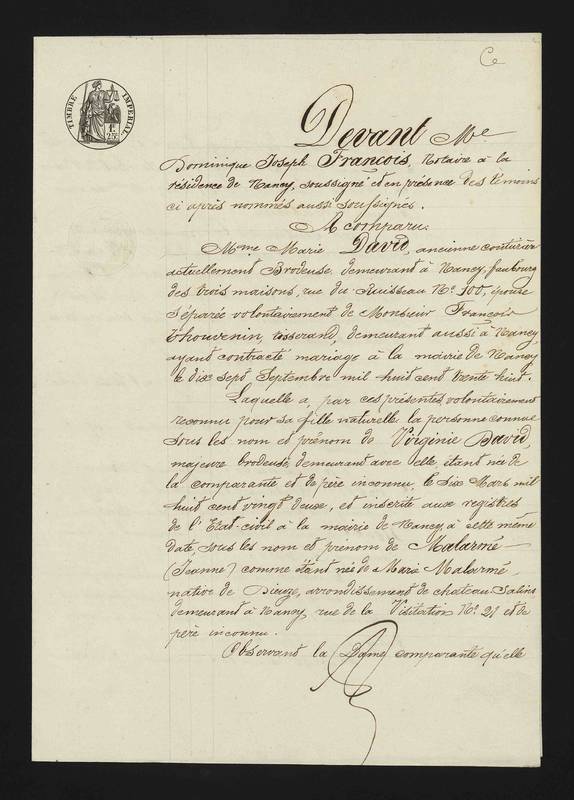 Ce
TIMBRE IMPERIAL
1f.
25c
Devant Me
Dominique Joseph François, Notaire à la
résidence de Nancy, soussigné et en présence des témoins
ci après nommés aussi soussignés.
A comparu:
Mme Marie David, ancienne couturière
actuellement Brodeuse, demeurant à Nancy, faubourg
des trois maisons, rue du Ruisseau No 100, épouse
séparée volontairement de Monsieur François
Thouvenin, tisserand, demeurant aussi à Nancy,
ayant contracté mariage à la mairie de Nancy
le dix sept Septembre mil huit cent trente huit.
Laquelle a, par ces présentes volontairement
reconnu pour sa fille naturelle la personne connue
sous les nom et prénom de Virginie David,
majeure brodeuse, demeurant avec elle, étant née de
la comparante et de père inconnu, le six Mars mil
huit cent vingt deux, et inscrite aux registres
de l'Etat civil à la mairie de Nancy, à cette même
date, sous les nom et prénom de Malarmé
(Jeanne) comme étant née de Marie Malarmé,
native de Dieuze, arrondissement de chateau Salins
demeurant à Nancy, rue de la Visitation No 21 et de
père inconnu.
Observant la Dame comparante qu'elle